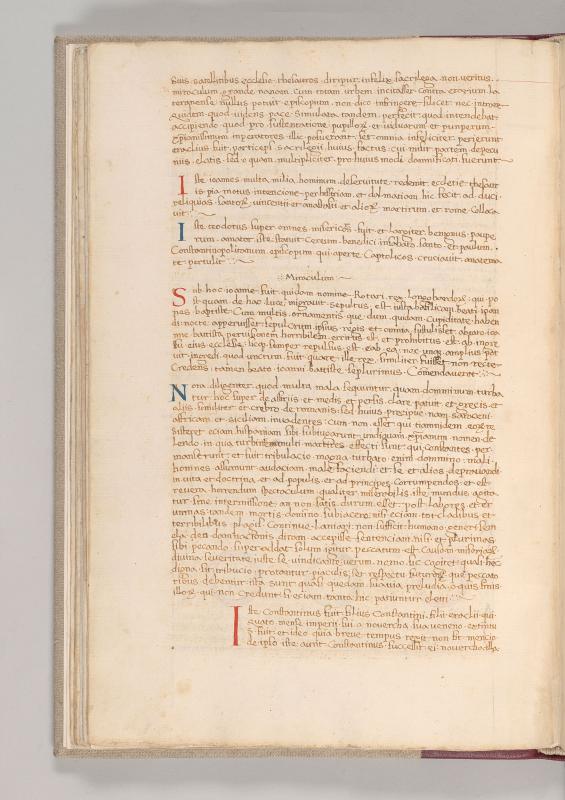 suis satellitibus ecclesie thesauros diripit infelix sacrilega non veritus
miraculum grande nanam cum totam urbem incitasset contra ecclesiam la
teranense nullus potuit episcopum non dico infringere silicet nec intrare
quidem quod videns pace simulata tandem perfecit quod intendebat
accipiendo quod pro sustentatione pupillorum et viduarum et pauperum
xpianissimi imperatores illic posuerant set omnia infeliciter perierunt
eraclius fuit particeps sacrilegii huius factus cui misit partem depecu
niis elatis sed quam multipliciter pro huius modi domnificati fuerunt
Iste ioames multa milia hominum de servitute redemit ecclesie thesaur
is pia motus intencione per histriam et dalmatiam hic fecit ad duci
reliquias santorum vincentii et anastasii et aliorum martirum et rome colloca
vit
Iste teodotus super omnes misericors fuit et largiter benignus paupe
rum amator iste statuit cereum benedici in sabato santo et paulum
Constantinopolitanum episcopum qui aperte Captolicos cruciavit anatema
te pertulit
Miraculum
Sub hoc ioanne fuit quidam nomine Rotari rex longobardorum qui po
st quam de hac luce migravit sepultus est iusta basilicam beati ioan
nes baptiste Cum multis ornamentis que dum quidam cupiditate haben
di nocte apperuisset sepulcrum ipsius regis et omnia sustulisset
me battista per visionem horribilem territus est et prohibitus est ab ingre
ssu eius ecclesie hicque semper repulsus est
uit ingredi quod utrum fuit quare ille rex similiter fuisset non recte
Credens tamen beato ioanni batiste se plurimus Comendaverat
Nota diligenter quod multa mala sequuntur quam dominium turba
tur hoc super de assiriis et medis et persis clare patuit et grecis et
aliis similiter et crebro de romanis sed huius precipue nam saraceni
affricam et siciliam invadentes cum non esset qui tiamnidem eorum
sisteret eciam hispaniam sibi subiugarunt undiquam xpianum nomen de
lendo in qua turbine multi martires effecti sunt qui constantes per
manserunt et fuit tribulacio magna turbato enim dominino mali
homines assumunt audaciam male faciendi et se et alios depravandi
in vita et doctrina et ad populis et ad principes corrumpendos et est
revera horrendum spectaculum qualiter miserabilis iste mundus agita
tur sine intermissione an non satis durum esset post labores et er
umnas tandem mortis domino subiacere nisi eciam tot cladibus et
terribilibus plagis Continue laniari non sufficit humano generi sem
el a deo damnacionis diram accepisse sentenciam nisi et plurimas
sibi peccando super addat solum igitur peccatum est causam miseriarum
divina severitate iuste se vindicante verum nemo hic capiret quali hec
digna sit tribucio protantur piaculis set respectu futurorum que peccato
ribus debentur ista sunt quasi quedam suavia preludia o quis finis
illorum qui non credunt si eciam tanta hic pariuntur eleti
Iste Constantinus fuit filius Constantini filii eraclii qui
quarto mense imperii sui a noverca sua veneno extintu
s fuit et ideo quia breve tempus regit non fit mencio
de ipso iste autem Constantinus successit ei noverca illa